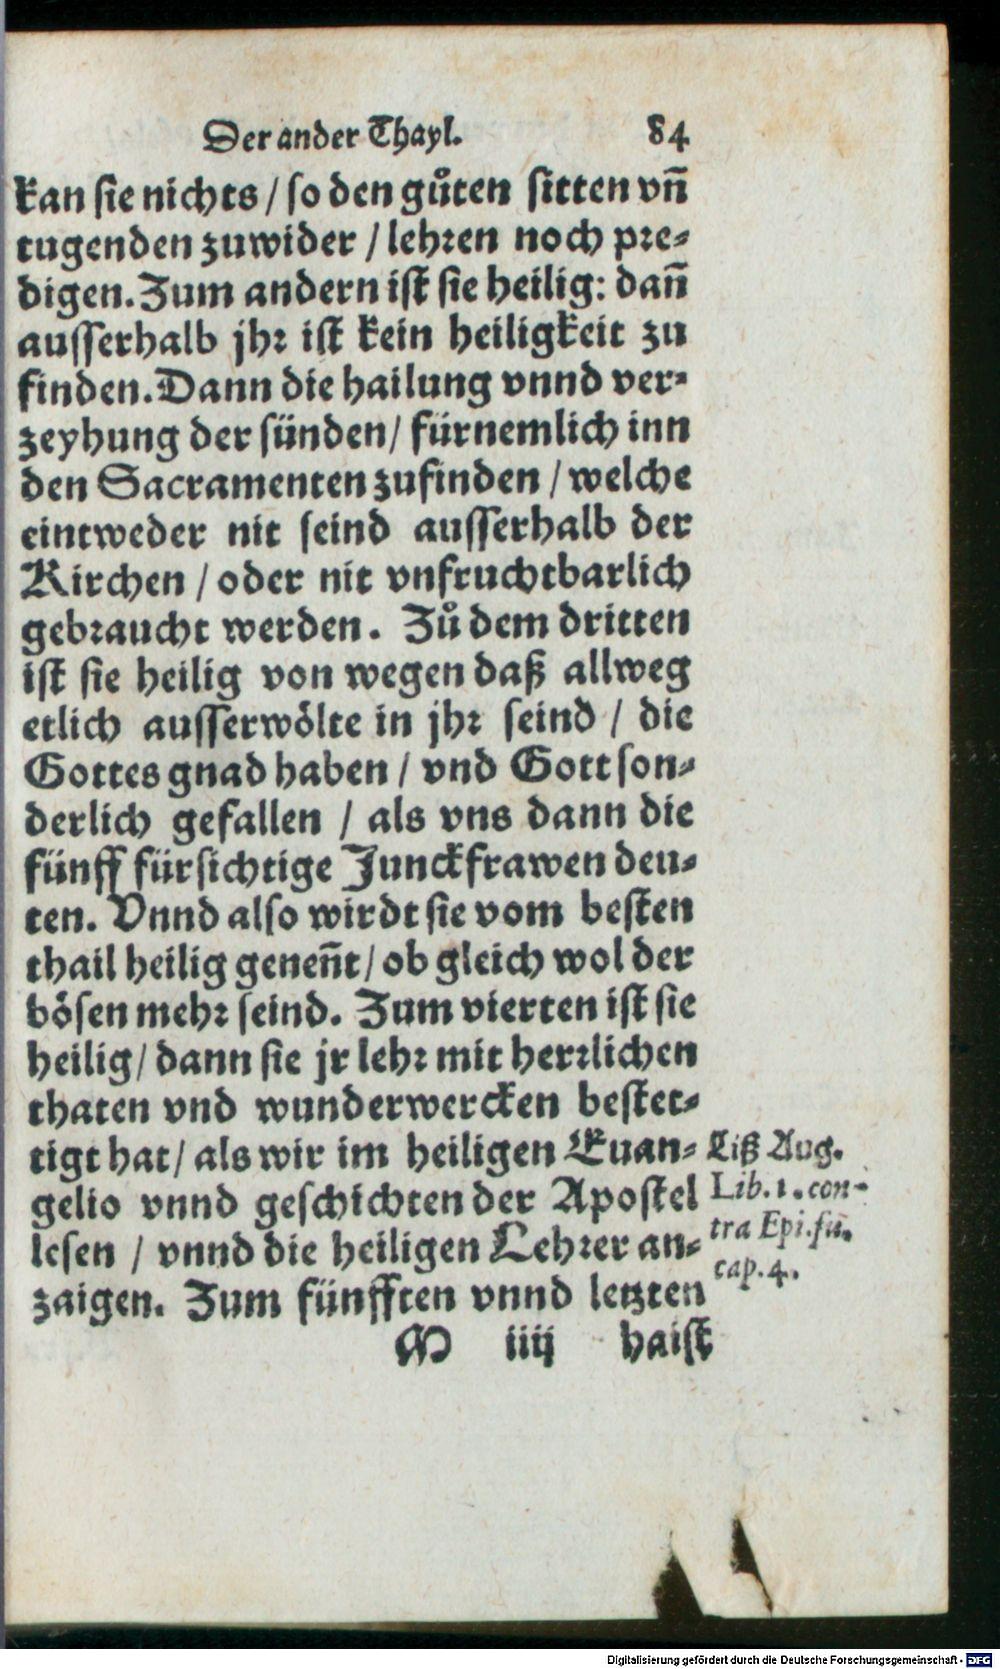 Der ander Thayl. 84
kan sie nichts / so den gůten sitten vn̄
tugenden zuwider / lehren noch pre-
digen. Zum andern ist sie heilig: dan̄
ausserhalb jhr ist kein heiligkeit zu
finden. Dann die hailung vnnd ver-
zeyhung der sünden / fürnemlich inn
den Sacramenten zufinden / welche
eintweder nit seind ausserhalb der
Kirchen / oder nit vnfruchtbarlich
gebraucht werden. Zů dem dritten
ist sie heilig von wegen daß allweg
etlich ausserwölte in jhr seind / die
Gottes gnad haben / vnd Gott son-
derlich gefallen / als vns dann die
fünff fürsichtige Junckfrawen deu-
ten. Vnnd also wirdt sie vom besten
thail heilig genen̄t / ob gleich wol der
bösen mehr seind. Zum vierten ist sie
heilig / dann sie jr lehr mit herrlichen
thaten vnd wunderwercken bestet-
tigt hat / als wir im heiligen Euan-
gelio vnnd geschichten der Apostel
lesen / vnnd die heiligen Lehrer an-
zaigen. Zum fünfften vnnd letzten
M iiij haist
Liß Aug.
Lib. 1. con-
tra Epi. fū.
cap. 4.
Digitalisierung gefördert durch die Deutsche Forschungsgemeinschaft - DFG